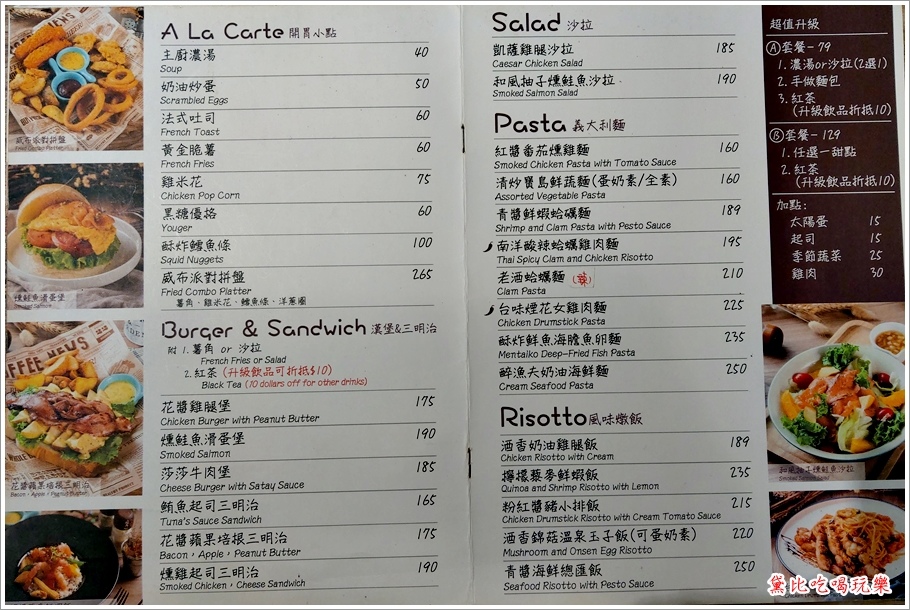 A La Carte 開胃小點
主廚濃湯 40
Soup
奶油炒蛋 50
Scrambled Eggs
法式吐司 60
French Toast
黃金脆薯 60
French Fries
雞米花 75
Chicken Pop Corn
黑糖優格 60
Youger
酥炸鱈魚條 100
Squid Nuggets
威布派對拼盤 265
Fried Combo Platter
薯角、雞米花、鱈魚條、洋蔥圈
Burger & Sandwich 漢堡&三明治
附 1. 薯角 or 沙拉
French Fries or Salad
2. 紅茶 (升級飲品可折抵$10)
Black Tea (10 dollars off for other drinks)
花醬雞腿堡 175
Chicken Burger with Peanut Butter
燻鮭魚滑蛋堡 190
Smoked Salmon
莎莎牛肉堡 185
Cheese Burger with Satay Sauce
鮪魚起司三明治 165
Tuna's Sauce Sandwich
花醬蘋果培根三明治 175
Bacon, Apple, Peanut Butter
燻雞起司三明治 190
Smoked Chicken, Cheese Sandwich
Salad 沙拉
凱薩雞腿沙拉 185
Caesar Chicken Salad
和風柚子燻鮭魚沙拉 190
Smoked Salmon Salad
Pasta 義大利麵
紅醬番茄燻雞麵 160
Smoked Chicken Pasta with Tomato Sauce
清炒寶島鮮蔬麵(蛋奶素/全素) 160
Assorted Vegetable Pasta
青醬鮮蝦蛤蠣麵 189
Shrimp and Clam Pasta with Pesto Sauce
南洋酸辣蛤蠣雞肉麵 195
Thai Spicy Clam and Chicken Risotto
老酒蛤蠣麵 210
Clam Pasta
台味煙花女雞肉麵 225
Chicken Drumstick Pasta
酥炸鮮魚海膽魚卵麵 235
Mentaiko Deep-Fried Fish Pasta
醉漁夫奶油海鮮麵 250
Cream Seafood Pasta
Risotto 風味燉飯
酒香奶油雞腿飯 189
Chicken Risotto with Cream
檸檬藜麥鮮蝦飯 235
Quinoa and Shrimp Risotto with Lemon
粉紅醬豬小排飯 215
Chicken Drumstick Risotto with Cream Tomato Sauce
酒香錦菇溫泉玉子飯(可蛋奶素) 220
Mushroom and Onsen Egg Risotto
青醬海鮮總匯飯 250
Seafood Risotto with Pesto Sauce
超值升級
Ⓐ套餐-79
1. 濃湯or沙拉(2選1)
2. 手做麵包
3. 紅茶
(升級飲品折抵10)
Ⓑ套餐-129
1. 任選一甜點
2. 紅茶
(升級飲品折抵10)
加點:
太陽蛋 15
起司 15
季節蔬菜 25
雞肉 30
威布派對拼盤
Fried Combo Platter
燻鮭魚滑蛋堡
COFFEE NEWS
花醬蘋果培根三明治
Bacon, Apple, Peanut Butter
和風柚子燻鮭魚沙拉
Smoked Salmon Salad
黛比吃喝玩樂